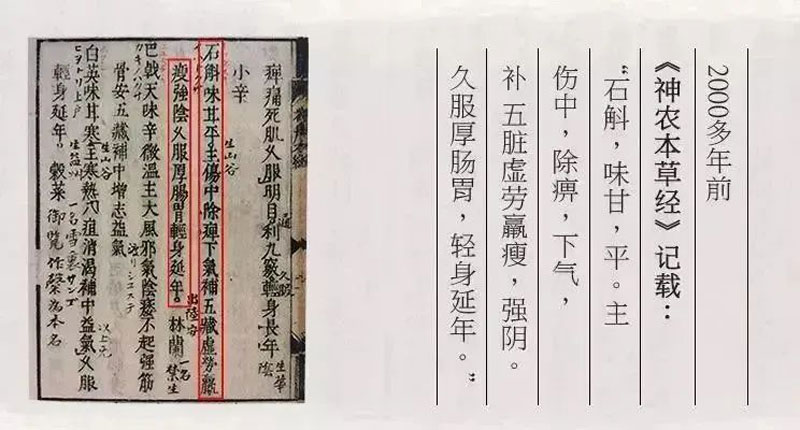 2000多年前
《神农本草经》记载：
“石斛，味甘，平。主
伤中，除痹，下气，
补 五脏虚劳羸瘦，强阴。
久服厚肠胃，轻身延年。”
痹痛死肌久服明目利九竅輕身長年
小辛
生山谷
石斛味甘平主傷中除痹下氣補五藏虛勞羸
瘦強陰久服厚腸胃輕身延年。林蘭
一名禁生
巴戟天味辛微溫主大風邪氣陰痿不起强筋
骨安五藏補中增志益氣
生山谷
白英味甘寒主寒熱八疸消渴補中益氣久服
輕身延年。穀菜